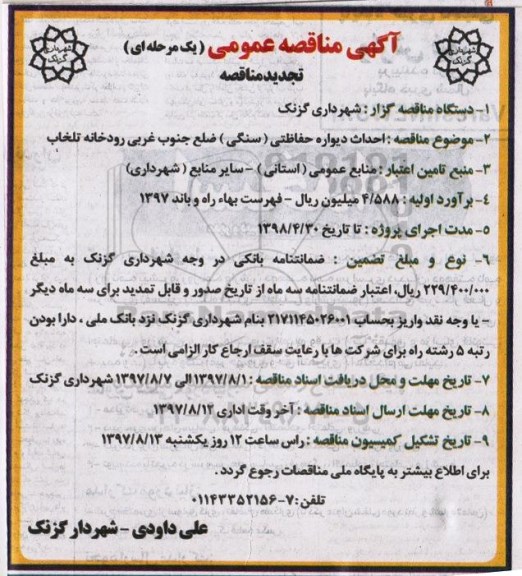 آگهی مناقصه عمومی (یک مرحله ای)
تجدیدمناقصه
شهرداری گزنک
شهرداری گزنک
۱- دستگاه مناقصه گزار : شهرداری گزنک
۲- موضوع مناقصه : احداث دیواره حفاظتی ( سنگی ) ضلع جنوب غربی رودخانه تلخاب
۳- منبع تامین اعتبار : منابع عمومی ( استانی ) - سایر منابع ( شهرداری)
۴- برآورد اولیه : ۴/۵۸۸ میلیون ریال - فهرست بهاء راه و باند ۱۳۹۷
۵- مدت اجرای پروژه : تا تاریخ ۱۳۹۸/۴/۳۰
۶- نوع و مبلغ تضمین : ضمانتنامه بانکی در وجه شهرداری گزنک به مبلغ
۲۲۹/۴۰۰/۰۰۰ ریال، اعتبار ضمانتنامه سه ماه از تاریخ صدور و قابل تمدید برای سه ماه دیگر
- یا وجه نقد واریز بحساب ۲۱۷۱۱۴۵۰۲۶۰۰۱ بنام شهرداری گزنک نزد بانک ملی ، دارا بودن
رتبه ۵ رشته راه برای شرکت ها با رعایت سقف ارجاع کار الزامی است .
۷- تاریخ مهلت و محل دریافت اسناد مناقصه : ۱۳۹۷/۸/۱ الی ۱۳۹۷/۸/۷ شهرداری گزنک
۸- تاریخ مهلت ارسال اسناد مناقصه : آخر وقت اداری ۱۳۹۷/۸/۱۲
۹- تاریخ تشکیل کمیسیون مناقصه : راس ساعت ۱۲ روز یکشنبه ۱۳۹۷/۸/۱۳
برای اطلاع بیشتر به پایگاه ملی مناقصات رجوع گردد .
تلفن : ۷-۰۱۱۴۳۳۵۲۱۵۶
علی داودی - شهردار گزنک